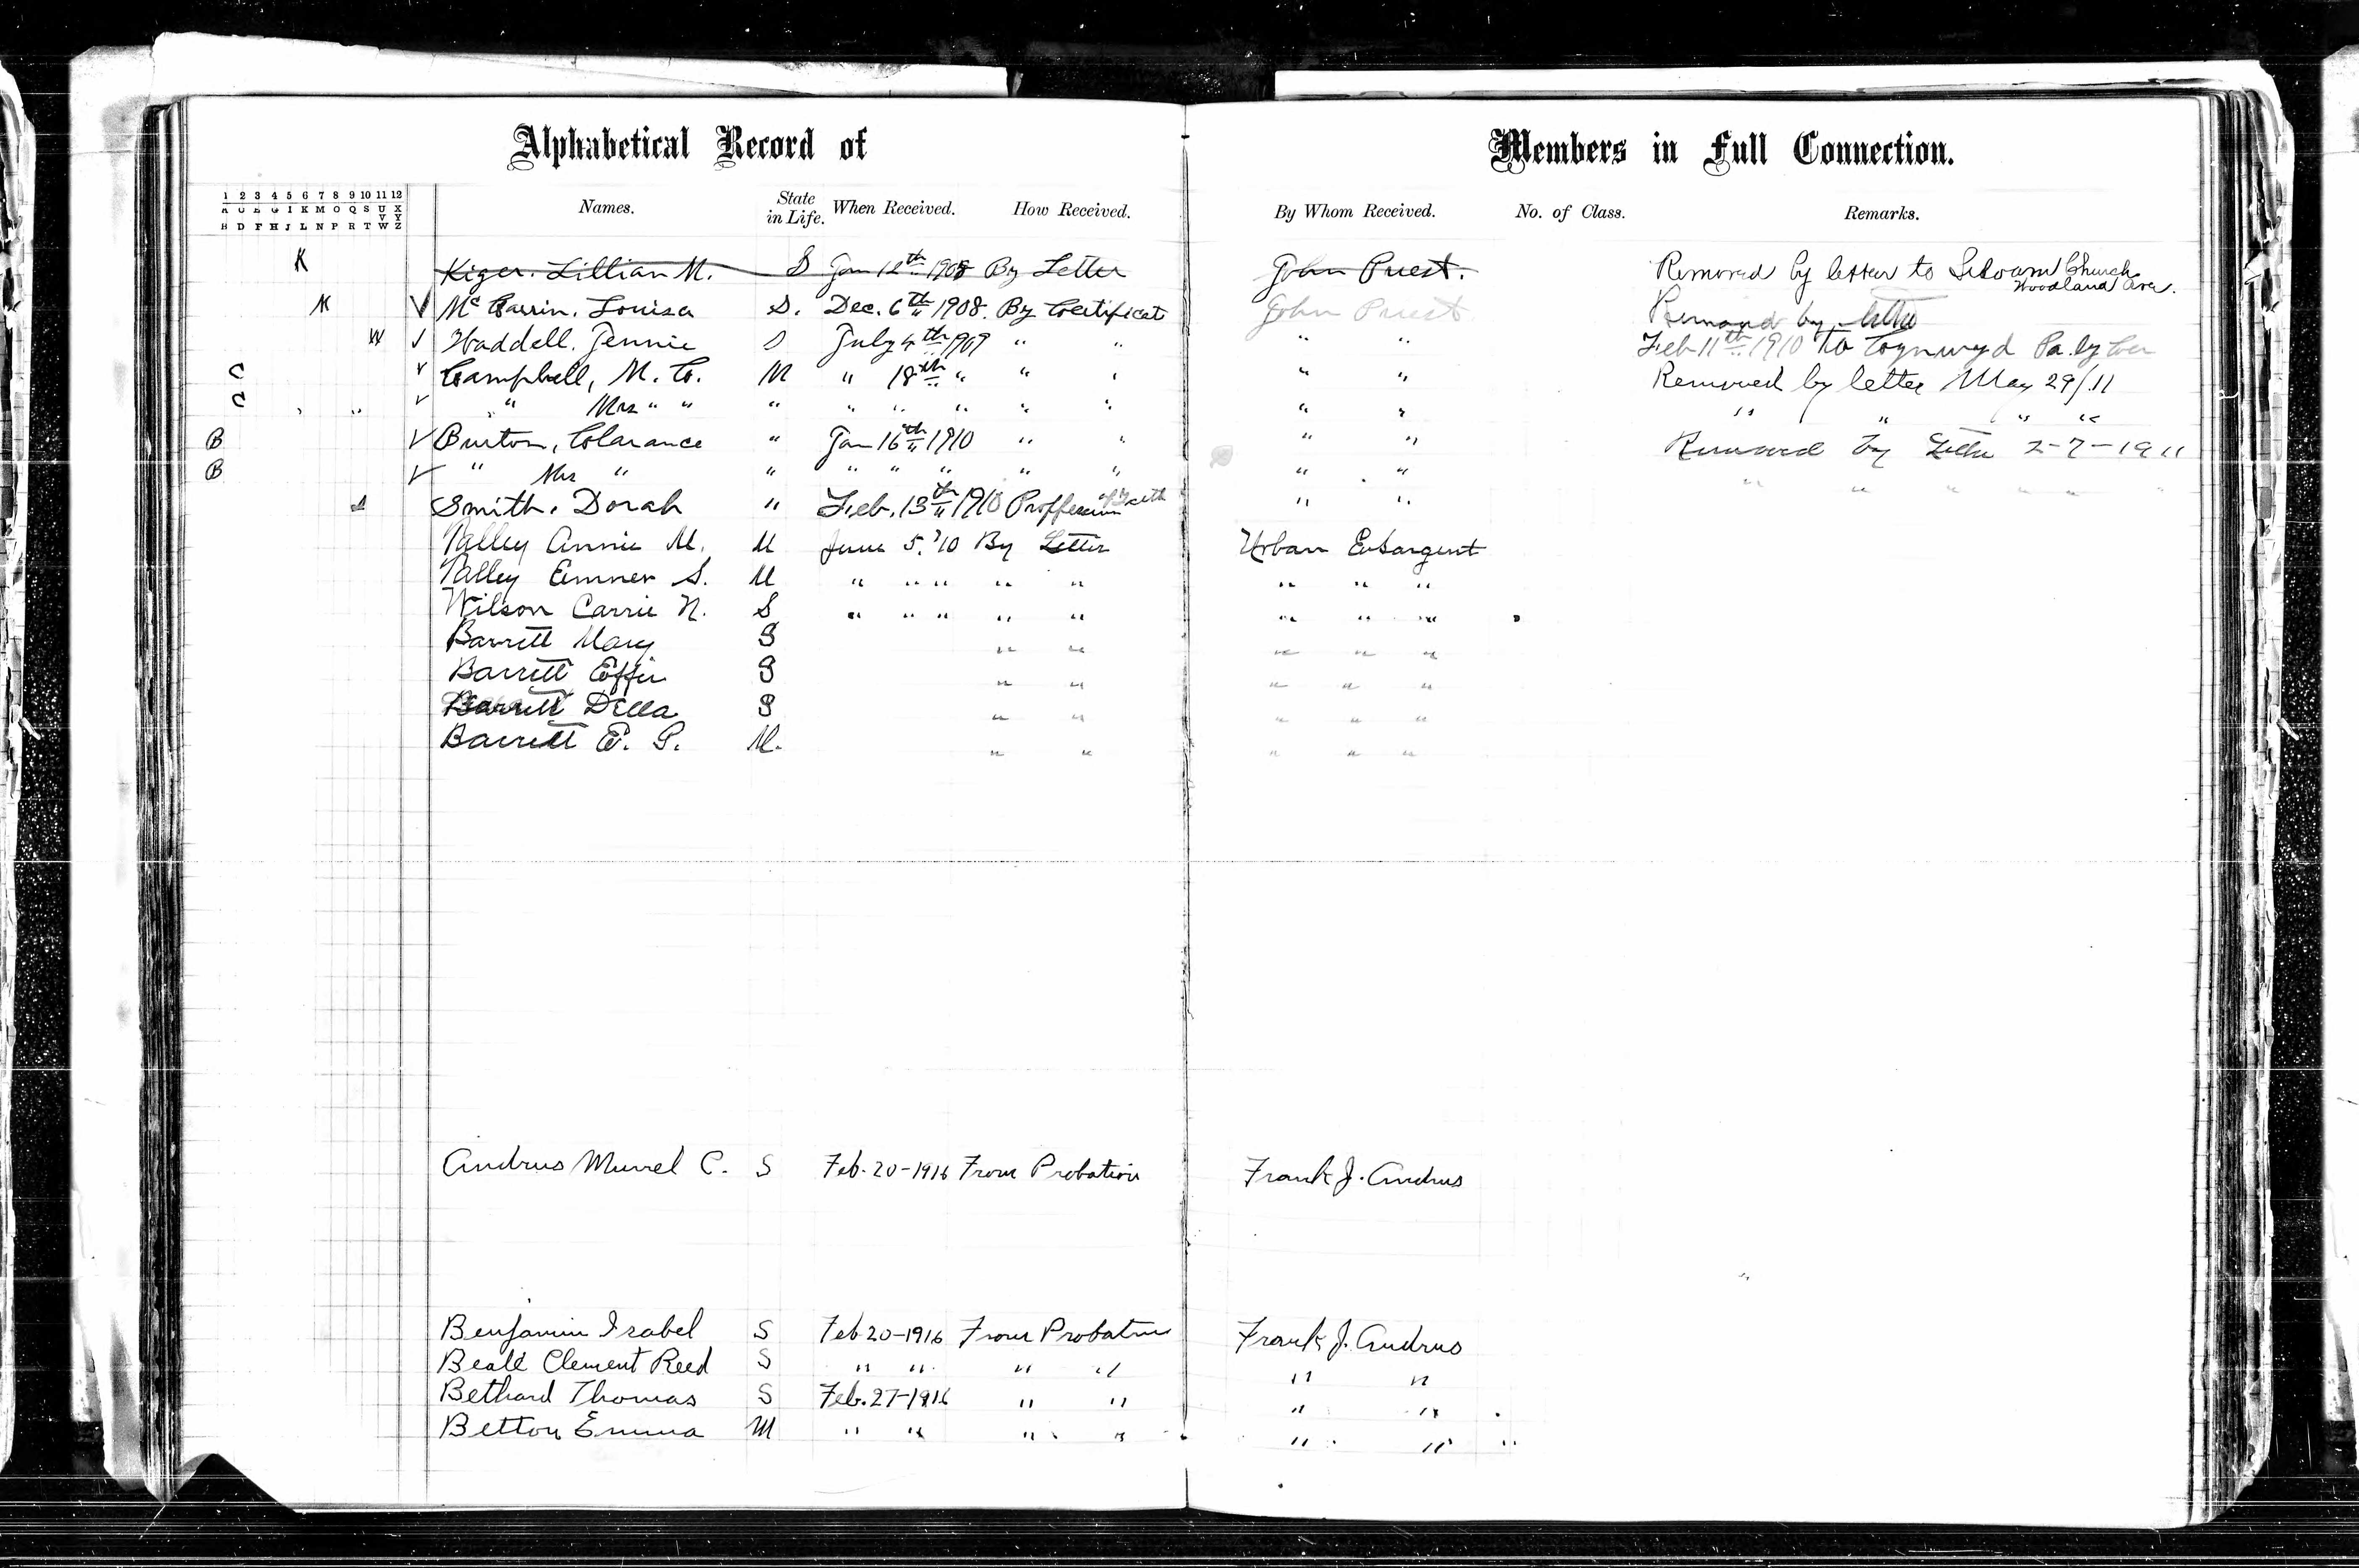 Alphabetical Record of Members in Full Connection.
1 2 3 4 5 6 7 8 9 10 11 12
A C E G I K M O Q S U X
V Y
B D F H J L N P R T W Z
Names. State in Life. When Received. How Received. By Whom Received. No. of Class. Remarks.
K Kiger. Lillian M. S Jan 12th 1908 By Letter John Priest. Removed by letter to Siloam Church Woodland Ave.
M V Mc Louisa S. Dec. 6th 1908. By Certificat John Priest Removed by letter
W V Waddell. Jennie S July 4th 1909 " " " " Feb 11th 1910 to Cynwyd Pa. by
C V Campbell, M. C. M " 18th " " " " " Removed by letter May 29/11
C V " Mrs " " " " " " " " " " " " " "
B V Burton, Clarance " Jan 16th 1910 " " " " Removed by Letter 2-7-1911
B V " Mrs " " " " " " " " " " " " " " "
S Smith, Dorah " Feb. 13th 1910 Proffession of Faith " "
Talley Annie M. M June 5, '10 By Letter Urban E. Sargent
Talley Emmer S. M " " " " " " " "
Wilson Carrie N. S " " " " " " " "
Barrett Mary S " " " " "
Barrett Effie S " " " " "
Barrett Della S " " " " "
Barrett E. P. M. " " " " "
Andrus Murrel C. S Feb. 20-1916 From Probation Frank J. Andrus
Benjamin Isabel S Feb 20-1916 From Probation Frank J. Andrus
Beall Clement Reed S " " " " " "
Bethard Thomas S Feb. 27-1916 " " " "
Betton Emma M " " " " " "